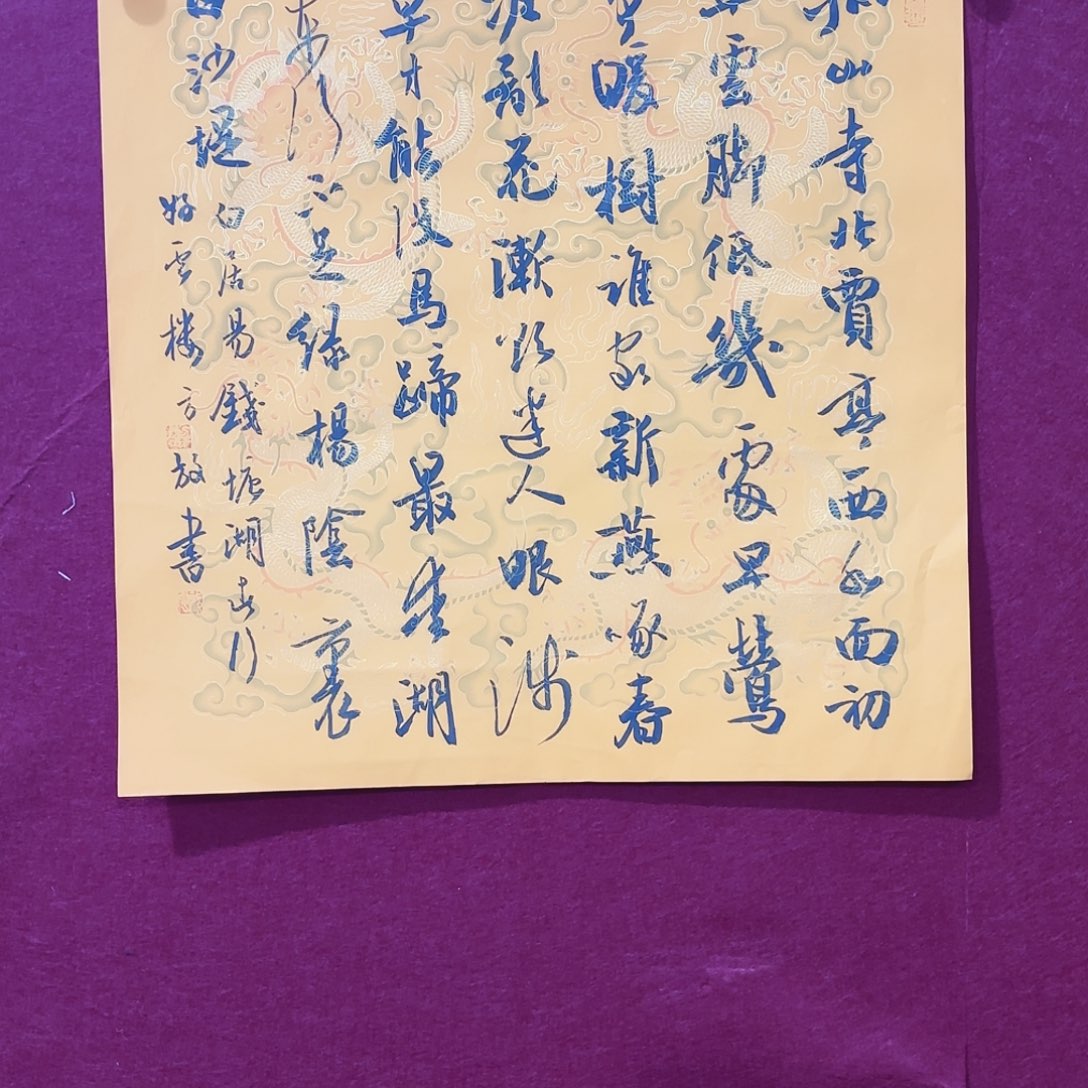 孤山寺北賈亭西水面初
平雲脚低幾處早鶯
爭暖樹誰家新燕啄春
泥亂花漸欲迷人眼淺
草才能没馬蹄最愛湖
東行不足緑楊陰裏
白沙堤
白居易錢塘湖春行
好雲楼方放書